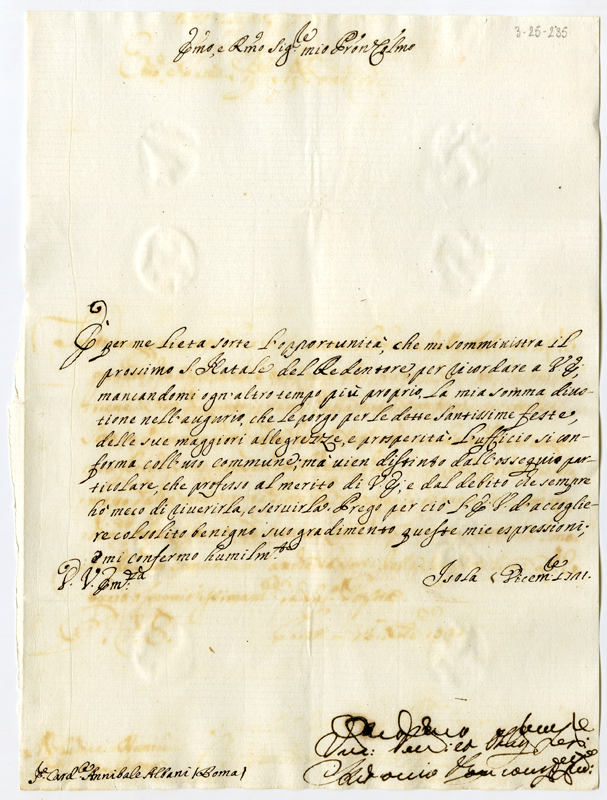 3-25-235
Em̃o, e Rm̃o Sig.re mio Pron Colmo
È per me lieta sorte l'opportunità, che mi somministra il
prossimo S. Natale del Redentore, per ricordare a V. Em;
mancandomi ogn'altro tempo più proprio la mia somma divo-
tione nell'augurio, che le porgo per le dette santissime feste,
delle sue maggiori allegrezze, e prosperità. L'ufficio si con-
forma coll'uso commune; mà vien distinto dall'ossequio par-
ticolare, che professo al merito di V. Em; e dal debito che sempre
hò meco di riverirla, e servirla. Prego per ciò l'Em. V. d'accoglie-
re col solito benigno suo gradimento queste mie espressioni;
e mi confermo humilm.te
D. V. Em.za
Isola Decem.re
S.r Card.le Annibale Albani (Roma)